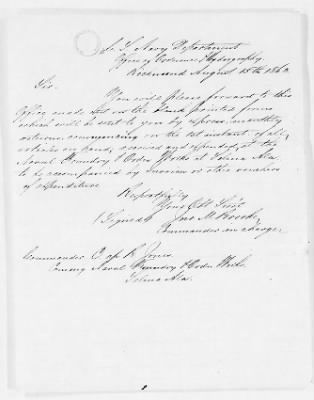 C. S. Navy Department
Office of Ordnance & Hydrography,
Richmond August 15th 186
Sir,
You will please forward to this
Office made out on the blank printed forms
which will be sent to you by express, monthly
returns, commencing on the 1st instant, of all
articles on hand, received and expended, at the
Naval Foundry & Ordn. Works at Selma Ala.
to be accompanied by invoices or other vouchers
of expenditure.
Respectfully
Your Obt Servt
(Signed) Jno. M. Brooke,
Commander in charge.
Commander C. ap R. Jones
Comdg Naval Foundry & Ordn Works.
Selma Ala.